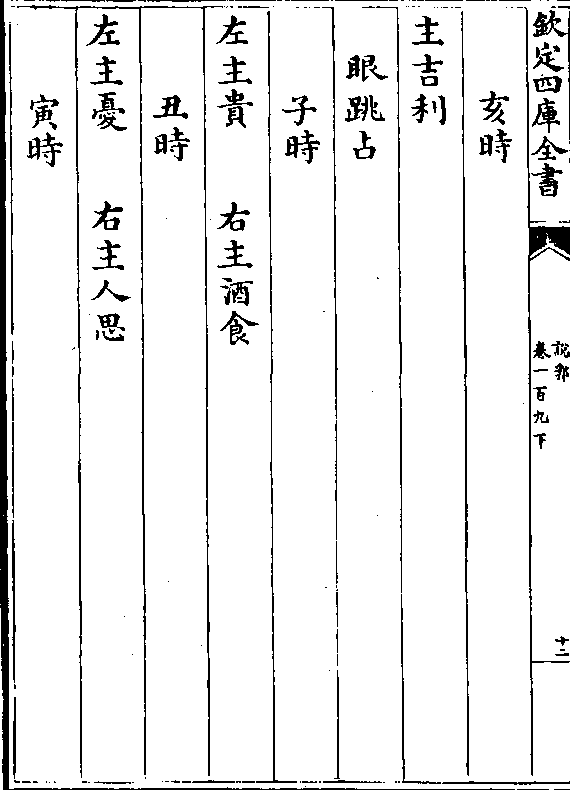 欽定四庫全書
說郛
卷一百九下
十二
亥時
主吉利
眼跳占
子時
左主貴　右主酒食
丑時
左主憂　右主人思
寅時